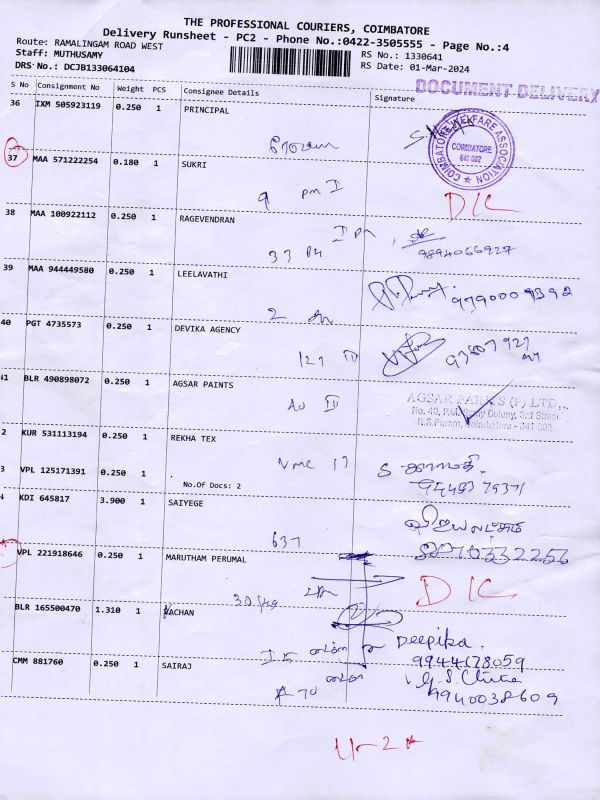 THE PROFESSIONAL COURIERS, COIMBATORE
Delivery Runsheet - PC2 - Phone No.:0422-3505555 - Page No.:4
Route: RAMALINGAM ROAD WEST
Staff: MUTHUSAMY
DRS No.: DCJB133064104
RS No.: 1330641
RS Date: 01-Mar-2024
DOCUMENT DELIVERY
S No Consignment No Weight PCS Consignee Details Signature
36 IXM 505923119 0.250 1 PRINCIPAL
COIMBATORE WELFARE ASSOCIATION
COIMBATORE
641 002
37 MAA 571222254 0.180 1 SUKRI
9 pm I
D/C
38 MAA 100922112 0.250 1 RAGEVENDRAN
33
9894066927
39 MAA 944449580 0.250 1 LEELAVATHI
2
9790009392
40 PGT 4735573 0.250 1 DEVIKA AGENCY
41 BLR 490898072 0.250 1 AGSAR PAINTS
AGSAR PAINTS (P) LTD.,
No. 40, P.M. Samy Colony, 3rd Street
R.S.Puram, Coimbatore - 641 002
2 KUR 531113194 0.250 1 REKHA TEX
3 VPL 125171391 0.250 1
No.Of Docs: 2
4 KDI 645817 3.900 1 SAIYEGE
637
VPL 221918646 0.250 1 MARUTHAM PERUMAL
D/C
BLR 165500470 1.310 1 VACHAN
Deepika.
9944178059
CMM 881760 0.250 1 SAIRAJ
70
9940038609